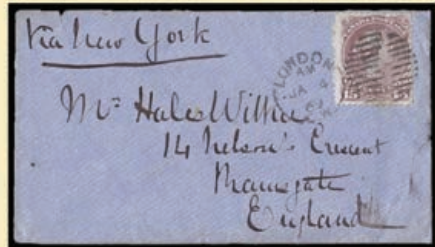 Via New York
LONDON
AM
JA 4
Mrs Hales
14 Nelson's Crescent
Ramsgate
England